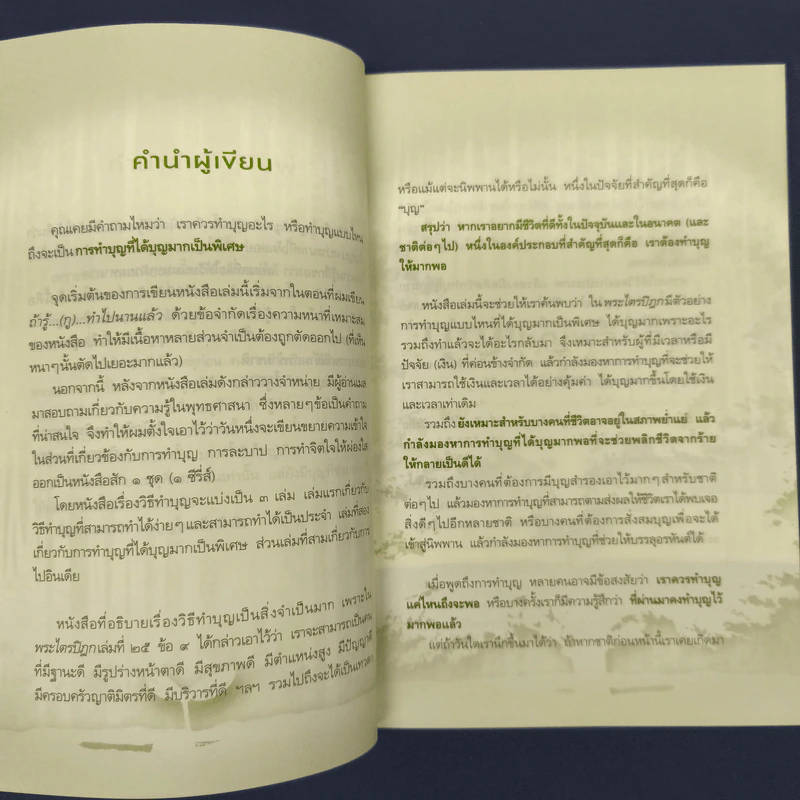 คำนำผู้เขียน
คุณเคยมีคำถามไหมว่า เราควรทำบุญอะไร หรือทำบุญแบบไหน
ถึงจะเป็น การทำบุญที่ได้บุญมากเป็นพิเศษ
จุดเริ่มต้นของการเขียนหนังสือเล่มนี้เริ่มจากในตอนที่ผมเขียน
ถ้ารู้...(กู)...ทำไปนานแล้ว ด้วยข้อจำกัดเรื่องความหนาที่เหมาะสม
ของหนังสือ ทำให้มีเนื้อหาหลายส่วนจำเป็นต้องถูกตัดออกไป (ที่เห็น
หนาๆ นั้นตัดไปเยอะมากแล้ว)
นอกจากนี้ หลังจากหนังสือเล่มดังกล่าววางจำหน่าย มีผู้อ่านเมล
มาสอบถามเกี่ยวกับความรู้ในพุทธศาสนา ซึ่งหลายๆ ข้อเป็นคำถาม
ที่น่าสนใจ จึงทำให้ผมตั้งใจเอาไว้ว่าวันหนึ่งจะเขียนขยายความเข้าใจ
ในส่วนที่เกี่ยวข้องกับการทำบุญ การละบาป การทำจิตใจให้ผ่องใส
ออกเป็นหนังสือสัก ๑ ชุด (๑ ซีรี่ส์)
โดยหนังสือเรื่องวิธีทำบุญจะแบ่งเป็น ๓ เล่ม เล่มแรกเกี่ยวกับ
วิธีทำบุญที่สามารถทำได้ง่ายๆ และสามารถทำได้เป็นประจำ เล่มที่สอง
เกี่ยวกับการทำบุญที่ได้บุญมากเป็นพิเศษ ส่วนเล่มที่สามเกี่ยวกับการ
ไปอินเดีย
หนังสือที่อธิบายเรื่องวิธีทำบุญเป็นสิ่งจำเป็นมาก เพราะใน
พระไตรปิฎกเล่มที่ ๒๕ ข้อ ๙ ได้กล่าวเอาไว้ว่า เราจะสามารถเป็นคน
ที่มีฐานะดี มีรูปร่างหน้าตาดี มีสุขภาพดี มีตำแหน่งสูง มีปัญญาดี
มีครอบครัวญาติมิตรที่ดี มีบริวารที่ดี ฯลฯ รวมไปถึงจะได้เป็นเทวดา
หรือแม้แต่จะนิพพานได้หรือไม่นั้น หนึ่งในปัจจัยที่สำคัญที่สุดก็คือ
"บุญ"
สรุปว่า หากเราอยากมีชีวิตที่ดีทั้งในปัจจุบันและในอนาคต (และ
ชาติต่อๆ ไป) หนึ่งในองค์ประกอบที่สำคัญที่สุดก็คือ เราต้องทำบุญ
ให้มากพอ
หนังสือเล่มนี้จะช่วยให้เราค้นพบว่า ใน พระไตรปิฎก มีตัวอย่าง
การทำบุญแบบไหนที่ได้บุญมากเป็นพิเศษ ได้บุญมากเพราะอะไร
รวมถึงทำแล้วจะได้อะไรกลับมา จึงเหมาะสำหรับผู้ที่มีเวลาหรือมี
ปัจจัย (เงิน) ที่ค่อนข้างจำกัด แล้วกำลังมองหาการทำบุญที่จะช่วยให้
เราสามารถใช้เงินและเวลาได้อย่างคุ้มค่า ได้บุญมากขึ้นโดยใช้เงิน
และเวลาเท่าเดิม
รวมถึง ยังเหมาะสำหรับบางคนที่ชีวิตอาจอยู่ในสภาพย่ำแย่ แล้ว
กำลังมองหาการทำบุญที่ได้บุญมากพอที่จะช่วยพลิกชีวิตจากร้าย
ให้กลายเป็นดีได้
รวมถึงบางคนที่ต้องการมีบุญสำรองเอาไว้มากๆ สำหรับชาติ
ต่อๆ ไป แล้วมองหาการทำบุญที่สามารถตามส่งผลให้ชีวิตเราได้พบเจอ
สิ่งดีๆ ไปอีกหลายชาติ หรือบางคนที่ต้องการสั่งสมบุญเพื่อจะได้
เข้าสู่นิพพาน แล้วกำลังมองหาการทำบุญที่ช่วยให้บรรลุอรหันต์ได้
เมื่อพูดถึงการทำบุญ หลายคนอาจมีข้อสงสัยว่า เราควรทำบุญ
แค่ไหนถึงจะพอ หรือบางครั้งเราก็มีความรู้สึกว่า ที่ผ่านมาคงทำบุญไว้
มากพอแล้ว
แต่ถ้าวันใดเรานึกขึ้นมาได้ว่า ถ้าหากชาติก่อนหน้านี้เราเคยเกิดมา